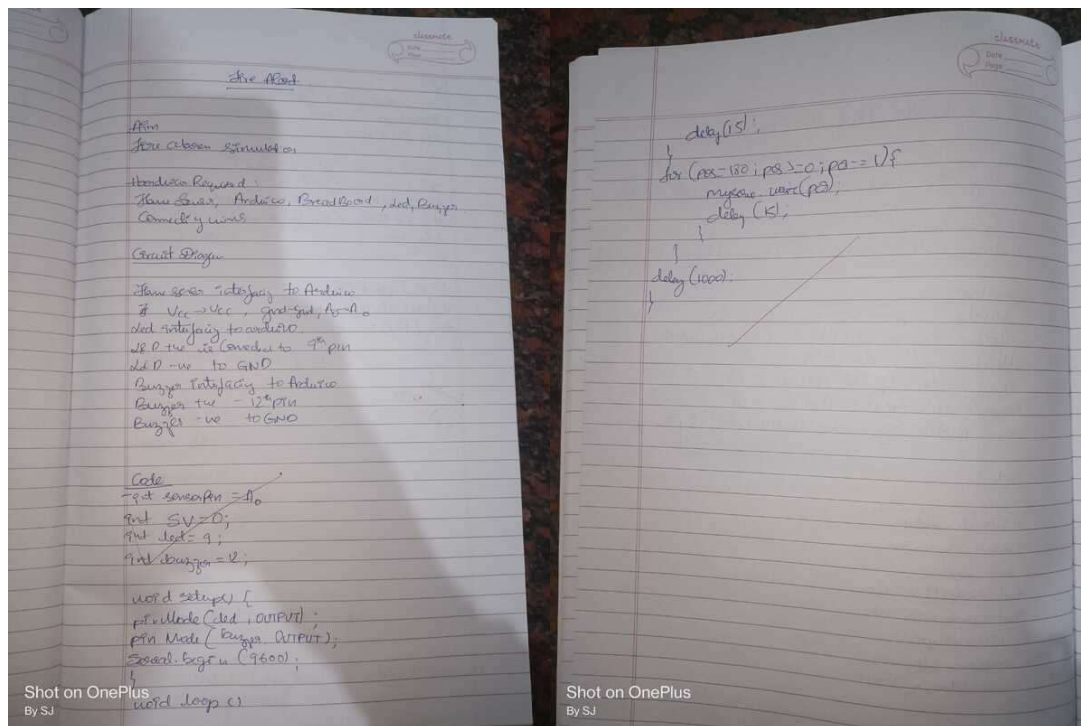 classmate
Date
Page
Fire
Aim
Fire alarm simulator
Hardware Required :
Flame Sensor, Arduino, BreadBoard, Led, Buzzer
wires
Circuit
Flame interfacing to Arduino
Vcc → Vcc, gnd-gnd, A0-A0
Led interfacing to arduino
LED +ve is to 9th pin
LED -ve to GND
Buzzer interfacing to Arduino
Buzzer +ve - 12th pin
Buzzer -ve to GND
Code
int sensorPin = A0
int SV=0;
int led= 9;
int buzzer = 12;
void setup() {
pinMode (led, OUTPUT);
pin Mode (buzzer, OUTPUT);
Serial.begin (9600);
}
void loop ()
Shot on OnePlus
By SJ
classmate
Date
Page
delay(15);
}
for (pos=180; pos>=0; pos-= 1){
delay (15);
}
}
delay(1000);
}
Shot on OnePlus
By SJ